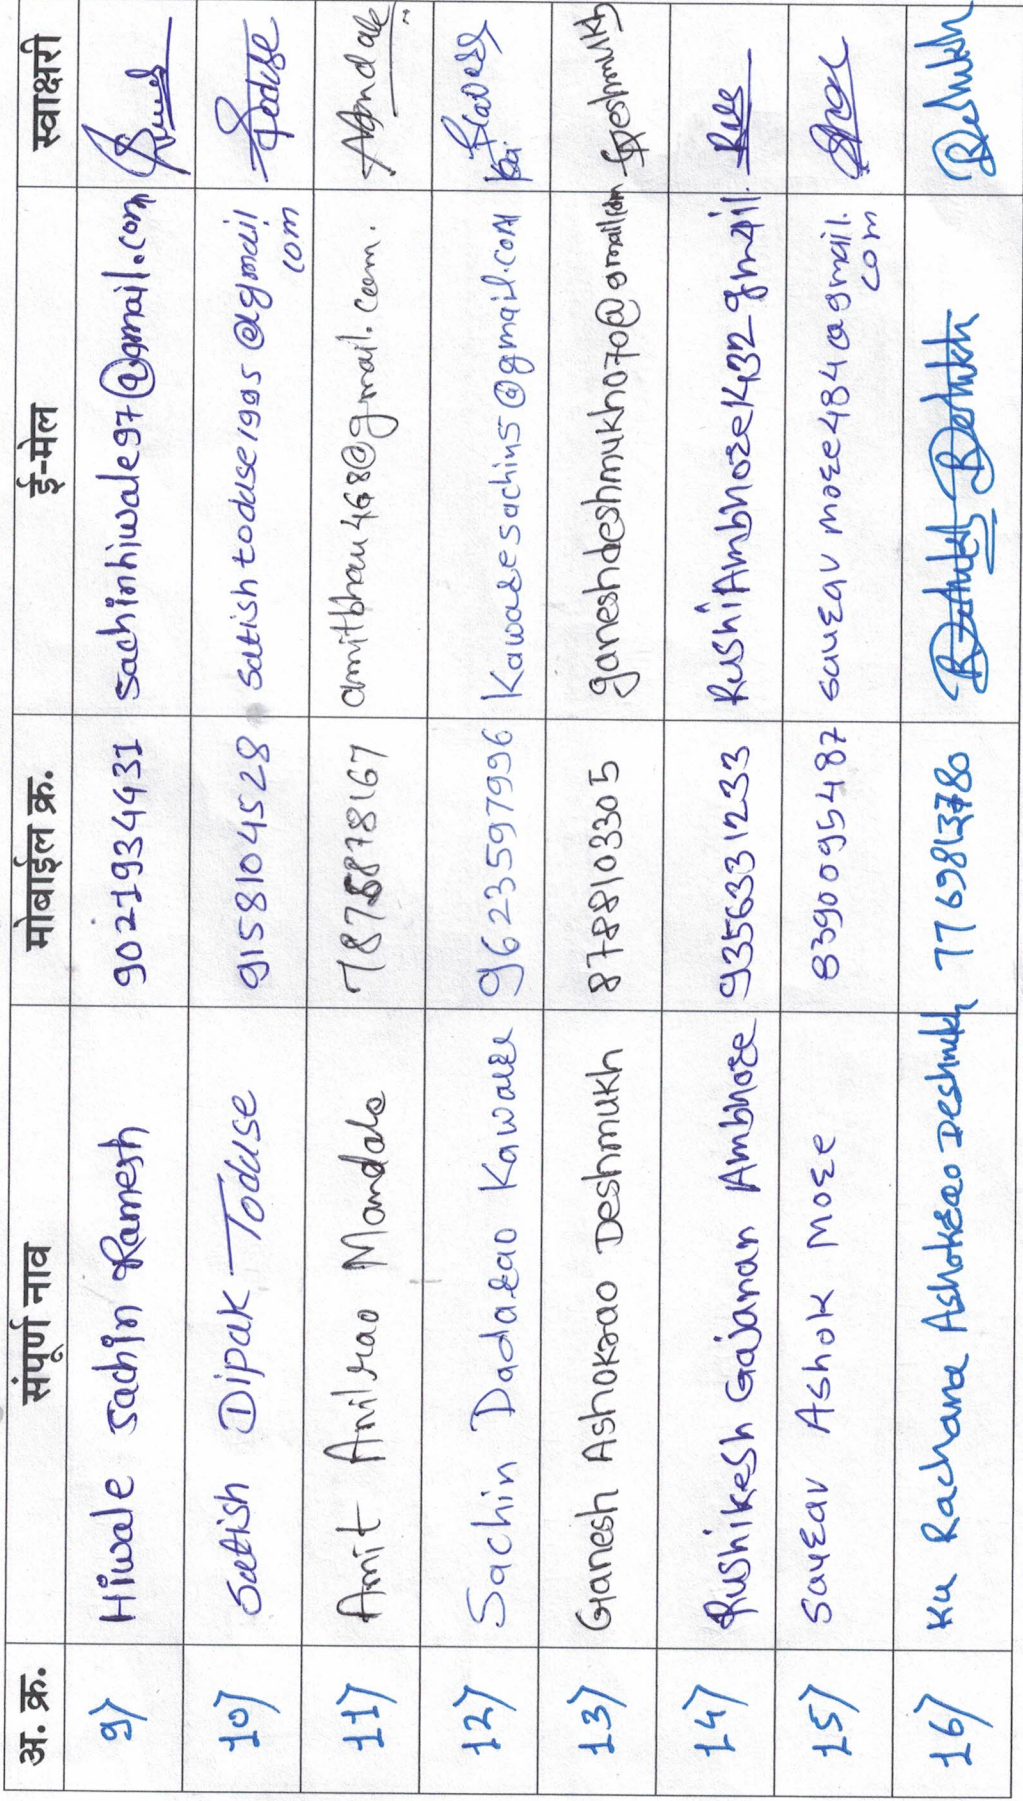 अ. क्र. संपूर्ण नाव मोबाईल क्र. ई-मेल स्वाक्षरी
9) Hiwale Sachin Ramesh 9021934431 sachinhiwale97@gmail.com
10) Satish Dipak Toduse 9158104528 satishtoduse1995@gmail
com Toduse
11) Amit Anilrao Mandale 7875878167 amitbhau468@gmail.com.
12) Sachin Dadarao Kaware 9623597996 Kawaresachin5@gmail.com
13) Ganesh Ashokrao Deshmukh 8788103305 ganeshdeshmukh070@gmail.com Gdeshmukh
14) Rushikesh Gajanan Ambhore 9356331233 RushiAmbhore1432gmail.
15) Saurav Ashok More 8390095487 sauravmore484@gmail.
com
16) Ku Rachana Ashokrao Deshmukh 7769813780 Deshmukh